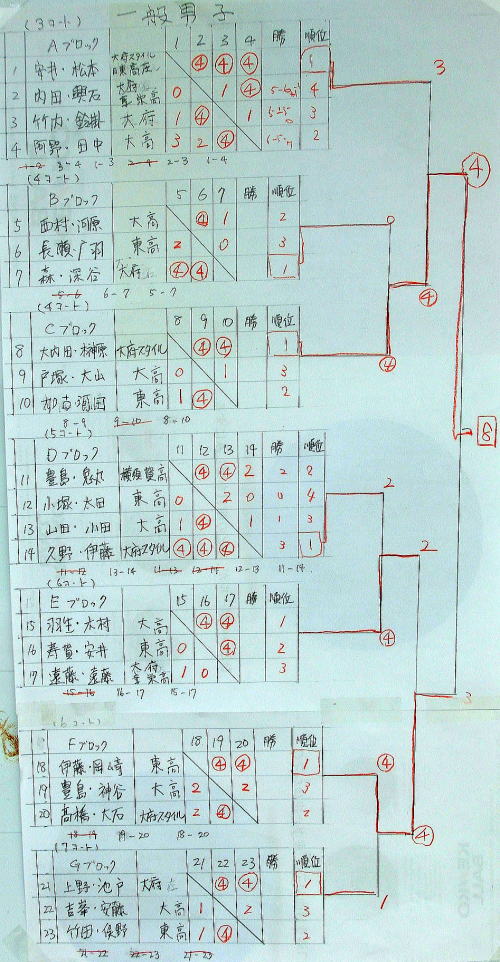 (3コート) 一般男子
Aブロック 1 2 3 4 勝 順位
1 安井・松本 大府スタイル ④ ④ ④ 1
2 内田・輿石 0 1 ④ 4
3 竹内・鈴掛 大府 1 ④ 1 3
4 阿野・田中 大高 3 2 ④ 2
1-2 3-4 1-3 2-4 2-3 1-4
(4コート)
Bブロック 5 6 7 勝 順位
5 西村・河原 大高 ④ 1 2
6 長瀬・戸羽 東高 2 0 3
7 森・深谷 大府 ④ ④ 1
5-6 6-7 5-7
(4コート)
Cブロック 8 9 10 勝 順位
8 大内田・榊原 大府スタイル ④ ④ 1
9 戸塚・大山 大高 0 1 3
10 東高 1 ④ 2
8-9 9-10 8-10
(5コート)
Dブロック 11 12 13 14 勝 順位
11 豊島・鬼丸 横須賀高 ④ ④ 2 2 2
12 小塚・太田 東高 0 2 0 0 4
13 山田・小田 大高 1 ④ 1 1 3
14 久野・伊藤 大府スタイル ④ ④ ④ 3 1
11-12 13-14 12-13 11-14
(6コート)
Eブロック 15 16 17 勝 順位
15 羽生・木村 大高 ④ ④ 1
16 寿賀・安井 東高 0 ④ 2
17 遠藤・遠藤 1 0 3
15-16 16-17 15-17
(6コート)
Fブロック 18 19 20 勝 順位
18 伊藤・岡崎 東高 ④ ④ 1
19 豊島・神谷 大高 2 2 3
20 高橋・大石 大府スタイル 2 ④ 2
18-19 19-20 18-20
(7コート)
Gブロック 21 22 23 勝 順位
21 上野・池戸 大府 ④ ④ 1
22 吉峯・安藤 大高 1 2 3
23 竹田・俣野 東高 1 ④ 2
21-22 22-23 21-23
3
④
0
④
④
8
2
2
④
3
④
④
1